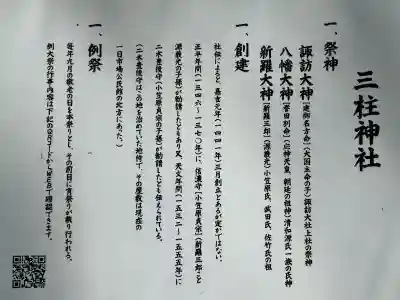 三柱神社
一、祭神
諏訪大神 [建御名方命]〈大国主命の子〉諏訪大社上社の祭神
八幡大神 [誉田別命]〈応神天皇、朝廷の祖神〉清和源氏一族の氏神
新羅大神 [新羅三郎]〈源義光〉小笠原氏、武田氏、佐竹氏の祖
一、創建
社伝によると、嘉吉元年(一四四一年)三月創立とあるが定かではない。
正平年間(一三四六~一三七〇年)に、信濃守[小笠原貞宗](新羅三郎こと
源義光の子孫)が勧請したともあり又、天文年間(一五三二~一五五五年)に
二木豊後守[小笠原貞宗の子孫]が勧請したとも伝えられている。
(二木豊後守はこの地を治めていた地侍で、その屋敷は現在の
一日市場公民館の北方にあった。)
一、例祭
毎年九月の敬老の日を本祭りとし、その前日に宵祭りが執り行われる。
例大祭の行事内容は下記のQRコードからWEBで確認できます。